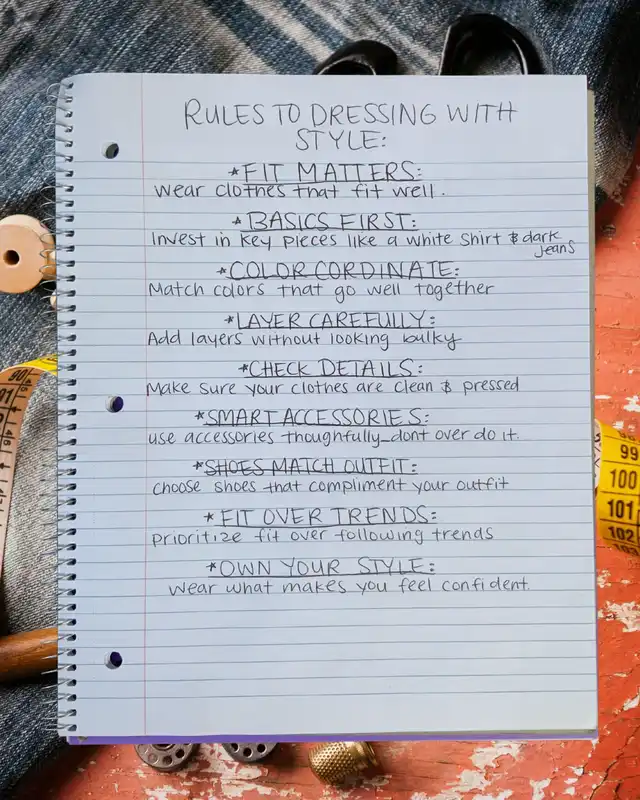 RULES TO DRESSING WITH
STYLE:
*FIT MATTERS:
wear clothes that fit well.
*BASICS FIRST:
Invest in key pieces like a white shirt & dark
jeans
*COLOR CORDINATE:
Match colors that go well together
*LAYER CAREFULLY:
Add layers without looking bulky
*CHECK DETAILS:
Make sure your clothes are clean & pressed
*SMART ACCESSORIES:
use accessories thoughtfully_dont over do it.
*SHOES MATCH OUTFIT:
choose shoes that compliment your outfit
*FIT OVER TRENDS:
prioritize fit over following trends
*OWN YOUR STYLE:
wear what makes you feel confident.
99
100
101
102